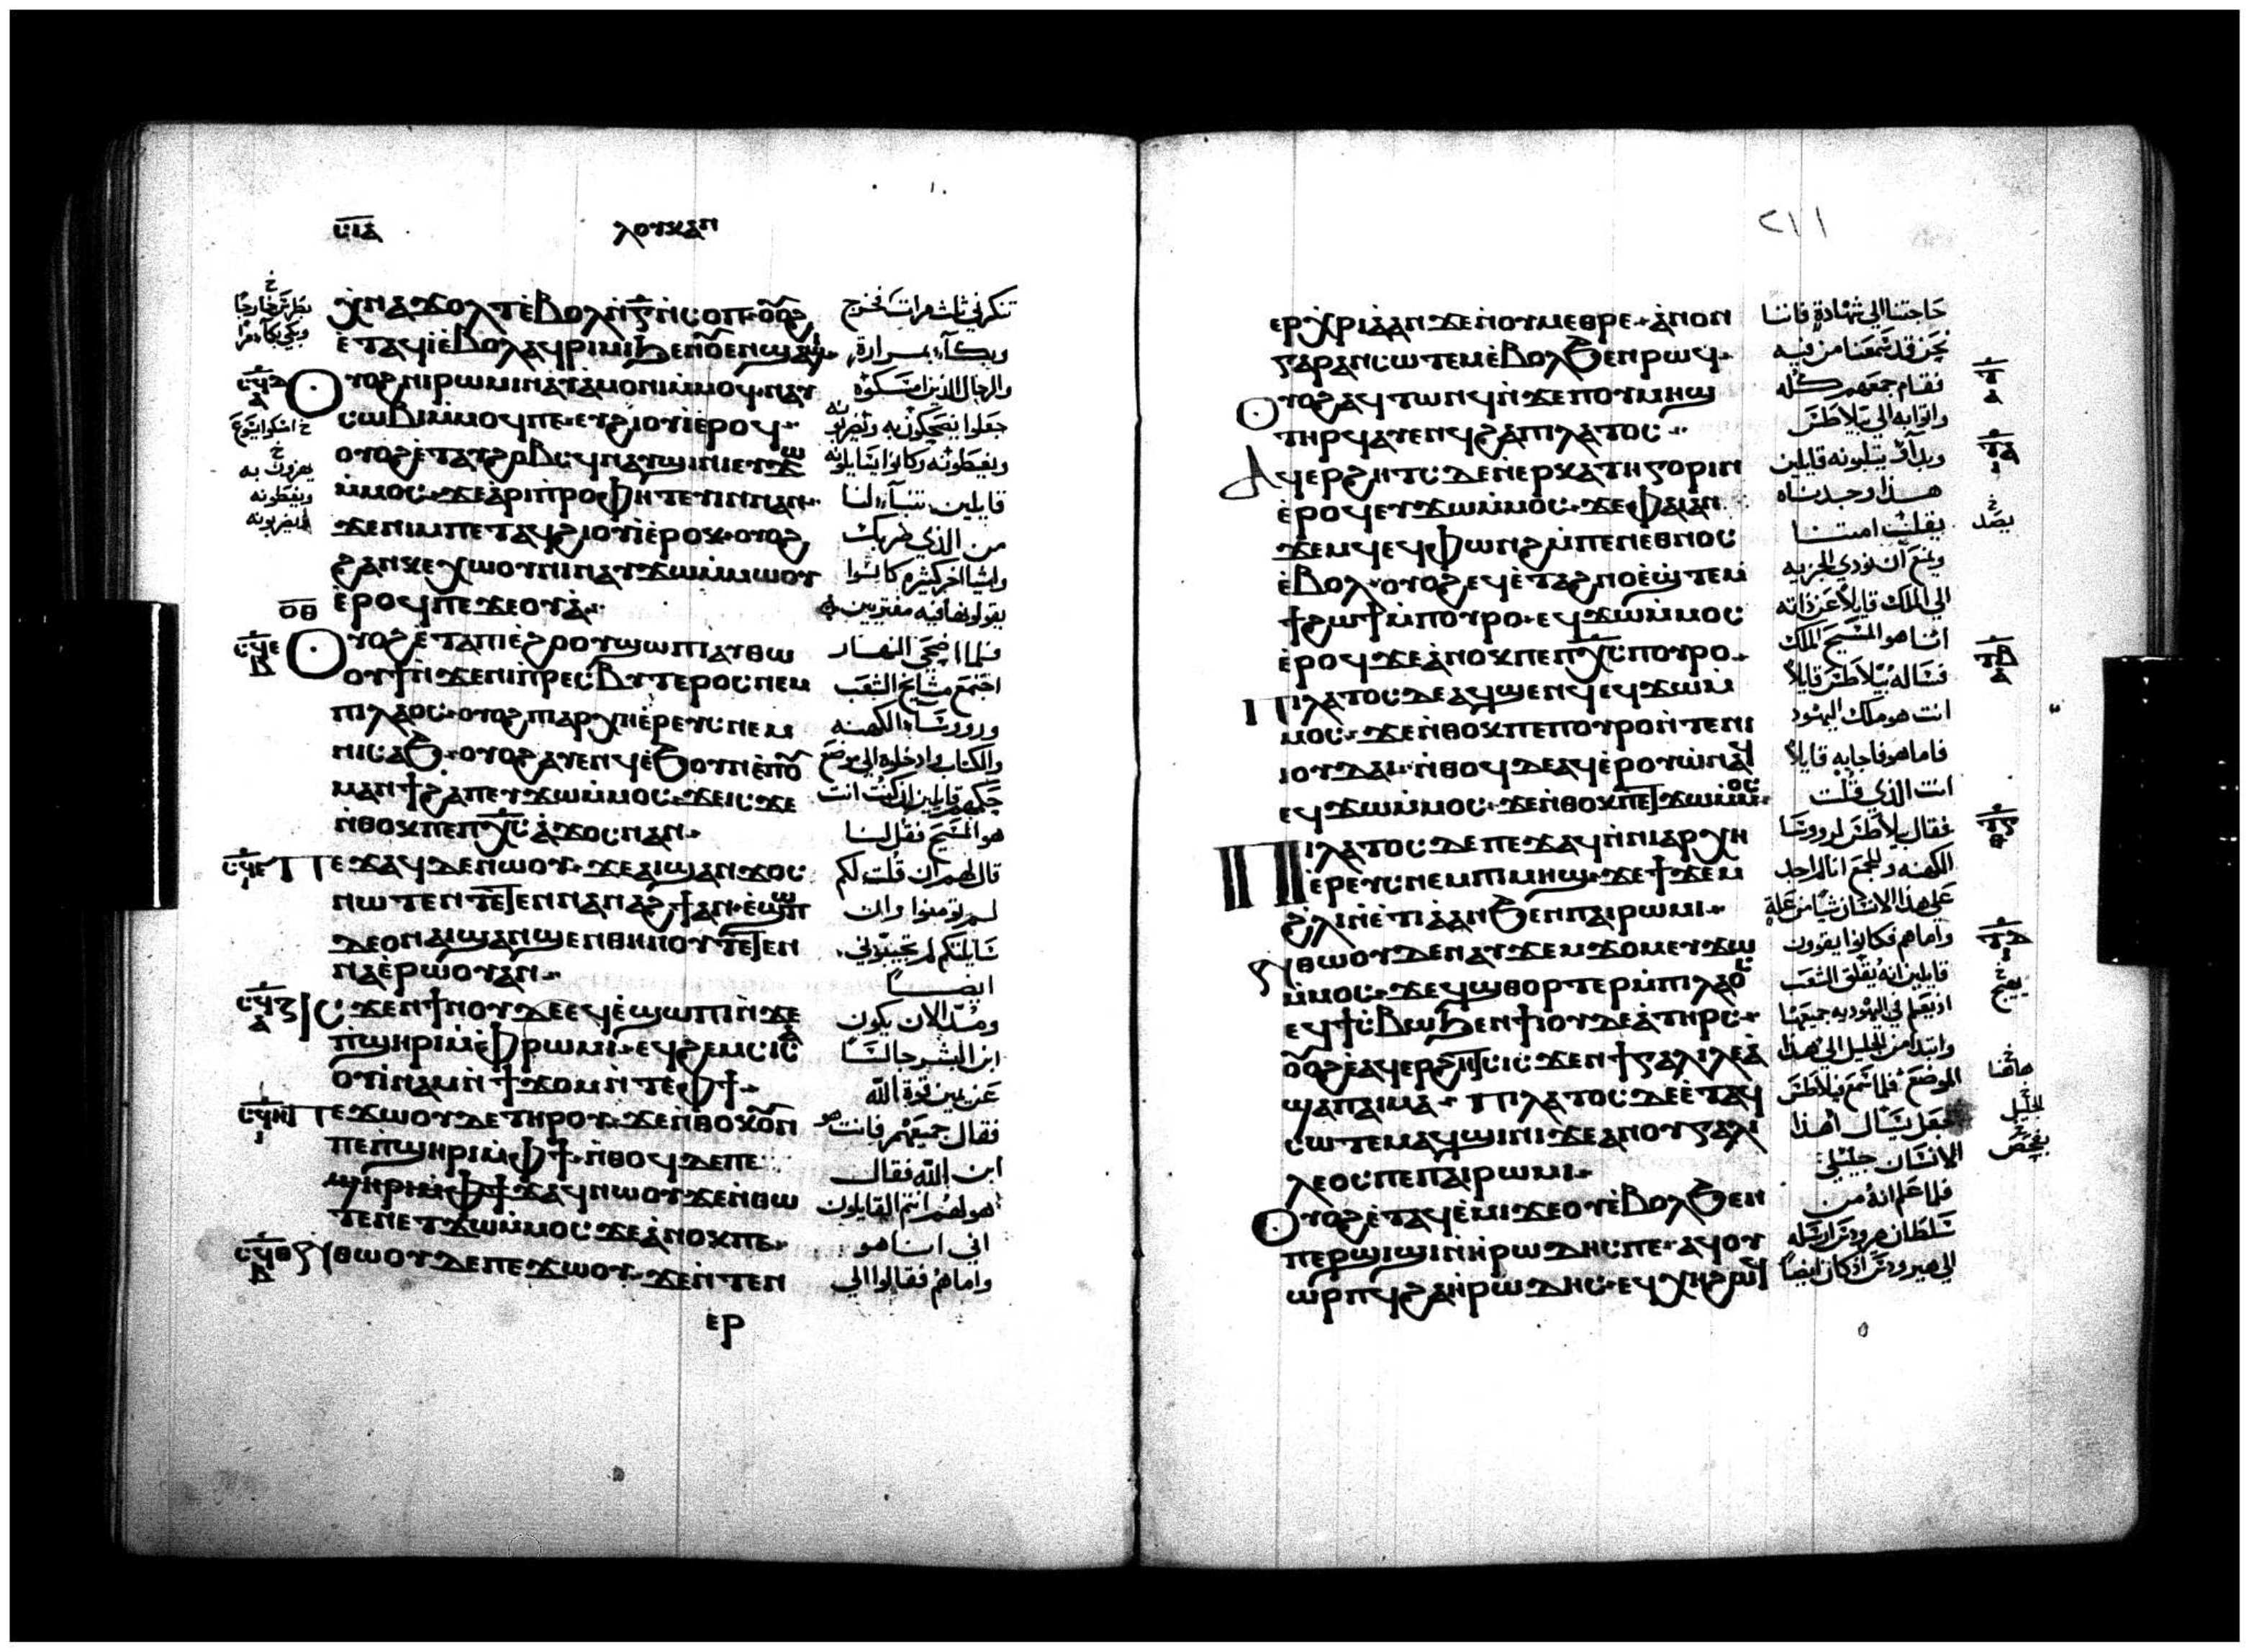 ⲥⲓⲁ
ⲗⲟⲩⲕⲁⲛ
ⲭⲛⲁϫⲟⲗⲧ ⲉⲃⲟⲗ ⲛⲅ ⲛⲥⲟⲡ ⲟⲩⲟϩ
ⲉⲧⲁϥⲓ ⲉⲃⲟⲗ ⲁϥⲣⲓⲙⲓ ϧⲉⲛ
ⲟⲩⲟϩ ⲛⲓⲣⲱⲙⲓ ⲛⲁⲧⲁⲙⲟⲛⲓ ⲙⲙⲟϥ ⲛⲁⲩ
ⲥⲱⲃⲓ ⲙⲙⲟϥ ⲡⲉ ⲉⲩϩⲓⲟⲩⲓ ⲉⲣⲟϥ
ⲟⲩⲟϩ ⲉⲧⲁⲩϩⲟⲃⲥϥ ⲛⲁⲩϣⲓⲛⲓ ⲉⲩϫⲱ
ⲙⲙⲟⲥ ϫⲉ ⲁⲣⲓⲡⲣⲟⲫⲏⲧⲉⲩⲓⲛ ⲛⲁⲛ
ϫⲉ ⲛⲓⲙ ⲡⲉⲧⲁϥϩⲓⲟⲩⲓ ⲉⲣⲟⲕ ⲟⲩⲟϩ
ϩⲁⲛⲕⲉⲭⲱⲟⲩⲛⲓ ⲛⲁⲩϫⲱ ⲙⲙⲱⲟⲩ
ⲉⲣⲟϥ ⲡⲉ ϫⲉⲟⲩⲁ
ⲟⲩⲟϩ ⲉⲧⲁ ⲡⲓⲉϩⲟⲟⲩ ϣⲱⲡⲓ ⲁⲩⲑⲱ
ⲟⲩϯ ⲛϫⲉ ⲛⲓⲡⲣⲉⲥⲃⲩⲧⲉⲣⲟⲥ ⲛⲉⲙ
ⲡⲓⲗⲁⲟⲥ ⲟⲩⲟϩ ⲛⲓⲁⲣⲭⲏⲉⲣⲉⲩⲥ ⲛⲉⲙ
ⲛⲓⲥⲁϧ ⲟⲩⲟϩ ⲁⲩⲉⲛϥ ⲉϧⲟⲩⲛ ⲉⲡⲟⲩ
ⲙⲁⲛϯϩⲁⲡ ⲉⲩϫⲱ ⲙⲙⲟⲥ ϫⲉ ⲓⲥϫⲉ
ⲛⲑⲟⲕ ⲡⲉ ⲡⲭⲥ ⲁϫⲟⲥ ⲛⲁⲛ
ⲡⲉϫⲁϥ ⲇⲉ ⲛⲱⲟⲩ ϫⲉ ⲁⲓϣⲁⲛϫⲟⲥ
ⲛⲱⲧⲉⲛ ⲧⲉⲧⲉⲛⲛⲁⲛⲁϩϯ ⲁⲛ ⲉϣⲱⲡ
ⲇⲉ ⲟⲛ ⲁⲓϣⲁⲛϣⲉⲛ ⲑⲏⲛⲟⲩ ⲧⲉⲧⲉⲛ
ⲛⲁⲉⲣⲟⲩⲱ ⲁⲛ
ⲓⲥϫⲉⲛ ϯⲛⲟⲩ ⲇⲉ ⲉϥⲉϣⲱⲡⲓ ⲛϫⲉ
ⲡϣⲏⲣⲓ ⲙⲫⲣⲱⲙⲓ ⲉϥϩⲉⲙⲥⲓ ⲥⲁ
ⲟⲩⲓⲛⲁⲙ ⲛϯϫⲟⲙ ⲛⲧⲉ ⲫϯ
ⲡⲉϫⲱⲟⲩ ⲇⲉ ⲧⲏⲣⲟⲩ ϫⲉ ⲛⲑⲟⲕ ⲟⲩⲛ
ⲡⲉ ⲡϣⲏⲣⲓ ⲙⲫϯ ⲛⲑⲟϥ ⲇⲉ ⲡⲉ
ϣⲏⲣⲓ ⲙⲫϯ ϫⲁϥ ⲛⲱⲟⲩ ϫⲉ ⲛⲑⲱ
ⲧⲉⲛ ⲉⲧϫⲱ ⲙⲙⲟⲥ ϫⲉ ⲁⲛⲟⲕ ⲡⲉ
ⲛⲑⲱⲟⲩ ⲇⲉ ⲡⲉϫⲱⲟⲩ ϫⲉ ⲛⲧⲉⲛ
ⲉⲣ
تنكرني ثلث مرات فخرج
وبكآء بمرارة
والرجال الذين امسكوه
جعلوا يضحكون به ويضربونه
ويغطونه وكانوا يسايلونه
قايلين تنبآء لنا
من الذي ضربك
واشيا اخر كثيره كانوا
يقولونها فيه مفتريين
فلما اضحى النهار
اجتمع مشايخ الشعب
وروسآء الكهنه
والكتاب وادخلوه الى موضع
حكمهم قايلين ان كنت انت
هو المسيح فقل لنا
قال لهم ان قلت لكم
لم تومنوا وان
سايلتكم لم تجيبوني
ايضاً
ومنذ الان يكون
ابن البشر جالساً
عن يمين قوة الله
فقال جميعهم فانت هو
ابن الله فقال
هو لهم انتم القايلون
اني انا هو
واما هم فقالوا الى
٢١١
ⲉⲣⲭⲣⲓⲁ ⲁⲛ ϫⲉ ⲛⲟⲩⲙⲉⲑⲣⲉ ⲁⲛⲟⲛ
ⲅⲁⲣ ⲁⲛⲥⲱⲧⲉⲙ ⲉⲃⲟⲗ ϧⲉⲛ ⲣⲱϥ
ⲟⲩⲟϩ ⲁϥⲧⲱⲛϥ ⲛϫⲉ ⲡⲟⲩⲙⲏϣ
ⲧⲏⲣϥ ⲁⲩⲉⲛϥ ϩⲁ ⲡⲓⲗⲁⲧⲟⲥ
ⲁⲩⲉⲣϩⲏⲧⲥ ⲇⲉ ⲛⲉⲣⲕⲁⲧⲏⲅⲟⲣⲓⲛ
ⲉⲣⲟϥ ⲉⲩϫⲱ ⲙⲙⲟⲥ ϫⲉ ⲫⲁⲓ ⲁⲛ
ϫⲉⲙϥ ⲉϥⲫⲱⲛϩ ⲙⲡⲉⲛⲉⲑⲛⲟⲥ
ⲉⲃⲟⲗ ⲟⲩⲟϩ ⲉϥⲉⲧⲁϩⲛⲟ ⲉϣⲧⲉⲙ
ϯϩⲱϯ ⲙⲡⲟⲩⲣⲟ ⲉϥϫⲱ ⲙⲙⲟⲥ
ⲉⲣⲟϥ ϫⲉ ⲁⲛⲟⲕ ⲡⲉ ⲡⲭⲥ ⲡⲟⲩⲣⲟ
ⲡⲓⲗⲁⲧⲟⲥ ⲇⲉ ⲁϥϣⲉⲛϥ ⲉϥϫⲱ ⲙ
ⲙⲟⲥ ϫⲉ ⲛⲑⲟⲕ ⲡⲉ ⲡⲟⲩⲣⲟ ⲛⲧⲉ ⲛⲓ
ⲓⲟⲩⲇⲁⲓ ⲛⲑⲟϥ ⲇⲉ ⲁϥⲉⲣⲟⲩⲱ ⲛⲁϥ
ⲉϥϫⲱ ⲙⲙⲟⲥ ϫⲉ ⲛⲑⲟⲕ ⲡⲉⲧϫⲱ ⲙⲙⲟⲥ
ⲡⲓⲗⲁⲧⲟⲥ ⲇⲉ ⲡⲉϫⲁϥ ⲛⲛⲓⲁⲣⲭⲏ
ⲉⲣⲉⲩⲥ ⲛⲉⲙ ⲡⲓⲙⲏϣ ϫⲉ ϯϫⲉⲙ
ϩⲗⲓ ⲛⲉⲧⲓⲁ ⲁⲛ ϧⲉⲛ ⲡⲁⲓⲣⲱⲙⲓ
ⲛⲑⲱⲟⲩ ⲇⲉ ⲛⲁⲩϫⲉⲙϫⲟⲙ ⲉⲩϫⲱ
ⲙⲙⲟⲥ ϫⲉ ϥϣⲑⲟⲣⲧⲉⲣ ⲙⲡⲓⲗⲁⲟⲥ
ⲉϥϯⲥⲃⲱ ϧⲉⲛ ϯⲓⲟⲩⲇⲉⲁ ⲧⲏⲣⲥ
ⲟⲩⲟϩ ⲉⲁϥⲉⲣϩⲏⲧⲥ ⲓⲥϫⲉⲛ ϯⲅⲁⲗⲓⲗⲉⲁ
ϣⲁ ⲡⲁⲓⲙⲁ ⲡⲓⲗⲁⲧⲟⲥ ⲇⲉ ⲉⲧⲁϥ
ⲥⲱⲧⲉⲙ ⲁϥϣⲓⲛⲓ ϫⲉ ⲁⲛ ⲟⲩⲅⲁⲗⲓ
ⲗⲉⲟⲥ ⲡⲉ ⲡⲁⲓⲣⲱⲙⲓ
ⲟⲩⲟϩ ⲉⲧⲁϥⲉⲙⲓ ϫⲉ ⲟⲩⲉⲃⲟⲗ ϧⲉⲛ
ⲡⲉⲣϣⲓϣⲓ ⲛⲏⲣⲱⲇⲏⲥ ⲡⲉ ⲁϥⲟⲩ
ⲱⲣⲡϥ ϩⲁ ⲏⲣⲱⲇⲏⲥ ⲉϥⲭⲏ ϩⲱϥ
حاجتنا الى شهادةٍ فاننا
نحن قد سمعنا من فيه
فقام جمعهم كله
واتوا به الى بيلاطس
وبدآو يتلونه قايلين
هذا وجدناه
يقلب امتنا
ويمنع ان نودي الجزيه
الى الملك قايلاً عن ذاته
انا هو المسيح الملك
فساله بيلاطس قايلاً
انت هو ملك اليهود
فاما هو فاجابه قايلاً
انت الذي قلت
فقال بيلاطس لروسا
الكهنه وللجمع انا لم اجد
على هذا الانسان شيا من علةٍ
واما هم فكانوا يقوون
قايلين انه يقلق الشعب
اذ يعلم في اليهوديه جميعها
وابتدا من الجليل الى هذا
الموضع فلما سمع بيلاطس
جعل يسال اهذا
الانسان جليلي
فلما علم انه من
سلطان هيرودس ارسله
الى هيرودس اذ كان ايضاً